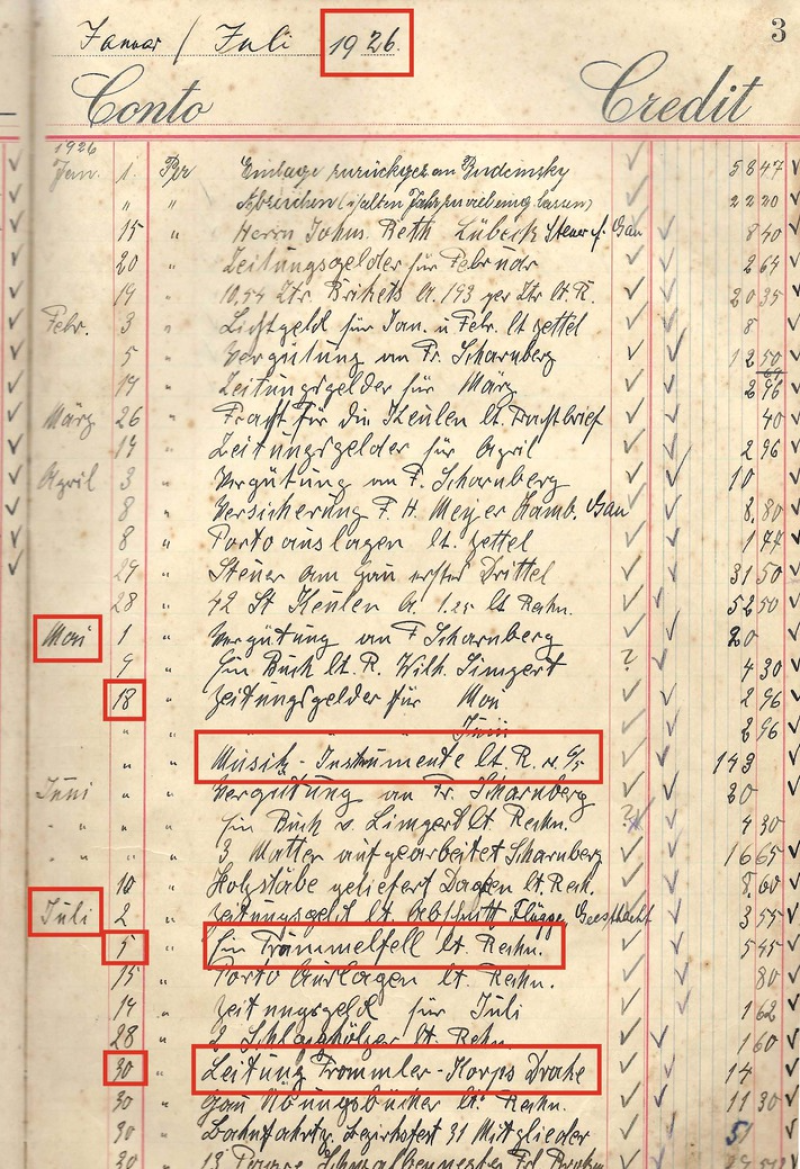 3
Januar / Juli 1926.
Conto Credit
1926
Jan. 1. Per Einlage zurückgez an Budcinsky 5847
" " Abzeichen
15 " Herrn Johns. Reth Lübeck Steuer f. Gau 840
20 " Zeitungsgelder für Februar 264
19 " 10,54 Ztr. Brikets A. 193 per Ztr lt. R. 2035
Febr. 3 " Lichtgeld für Jan. u Febr. lt Zettel 8
5 " Vergütung an Fr. Scharnberg 1250
14 " Zeitungsgelder für März 296
März 26 " Fracht für die Keulen lt. Frachtbrief 40
14 " Zeitungsgelder für April 296
April 3 " Vergütung an F. Scharnberg 10
8 " Versicherung F. H. Meyer Hamb. Gau 8,80
8 " Porto auslagen lt. Zettel 1
29 " Steuer am Gau erster Drittel 3150
28 " 42 St Keulen A. 1.25 lt Rechn. 5250
Mai 1 " Vergütung an F Scharnberg 20
9 " Ein Buch lt. R. Wilh. Limpert ? 430
18 " Zeitungsgelder für Mai 296
" " " " Juni 296
" " Musik-Instrumente lt. R. v. 6/5 143
Juni " " Vergütung an Fr. Scharnberg 20
" " " " Ein Buch v. Limpert lt. Rechn. ? 430
" " " " 3 Matten aufgearbeitet Scharnberg 1665
10 " Holzstäbe geliefert lt. Rech. 8,60
Juli 2 " Zeitungsgeld lt. Abschnitt Flügge, Geesthacht 355
5 " Ein Trommelfell lt. Rechn. 545
15 " Porto Auslagen lt. Rechn. 80
14 " Zeitungsgeld für Juli 162
28 " 2 Schlaghölzer lt. Rechn. 160
30 " Leitung Trommler-Korps Drahe 14
30 " Gau Übungsbücher lt. Rechn. 1130
30 " Bahnfahrtg. Bezirksfest 31 Mitglieder 51
30 " 13 Paare Schwalbennester